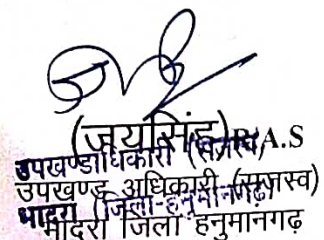 (जयसिंह) R.A.S
उपखण्डाधिकारी (राजस्व)
उपखण्ड अधिकारी (राजस्व)
भादरा (जिला-हनुमानगढ़)
भादरा जिला हनुमानगढ़